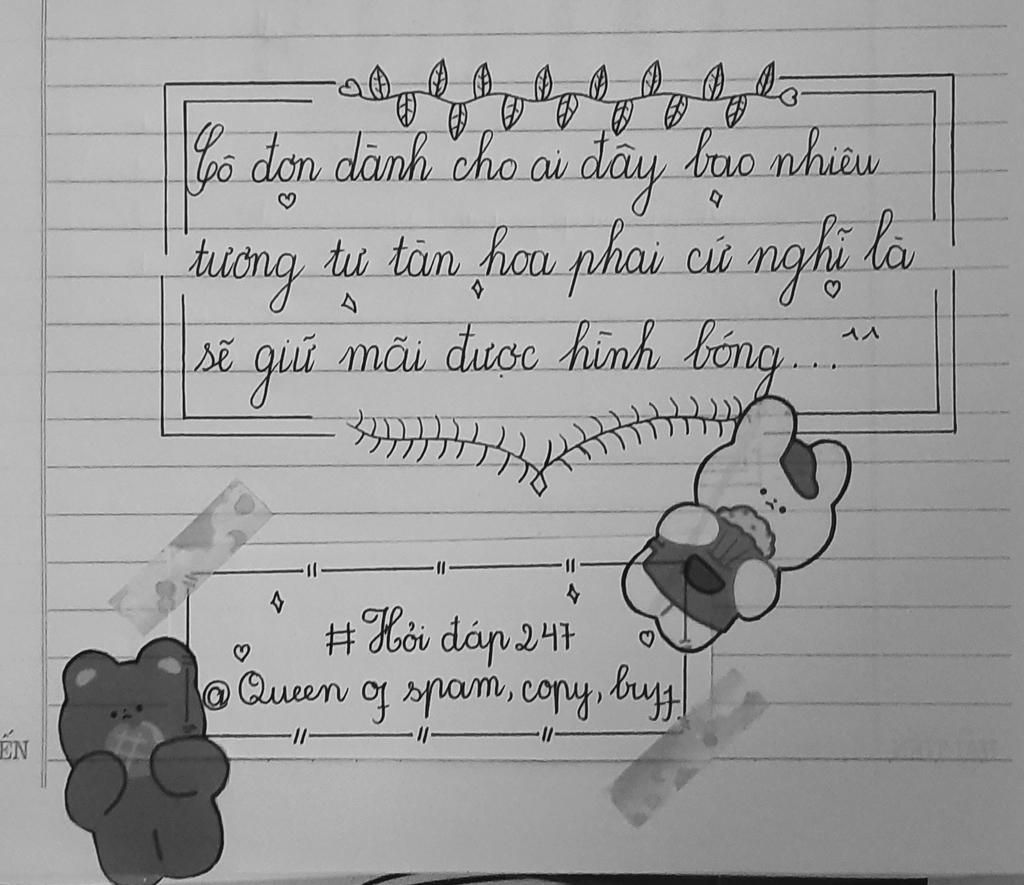 Cô đơn dành cho ai đây bao nhiêu
tương tư tàn hoa phai cứ nghĩ là
sẽ giữ mãi được hình bóng...^^
# Hỏi đáp 247
@Queen of spam, copy, buff
ẾN